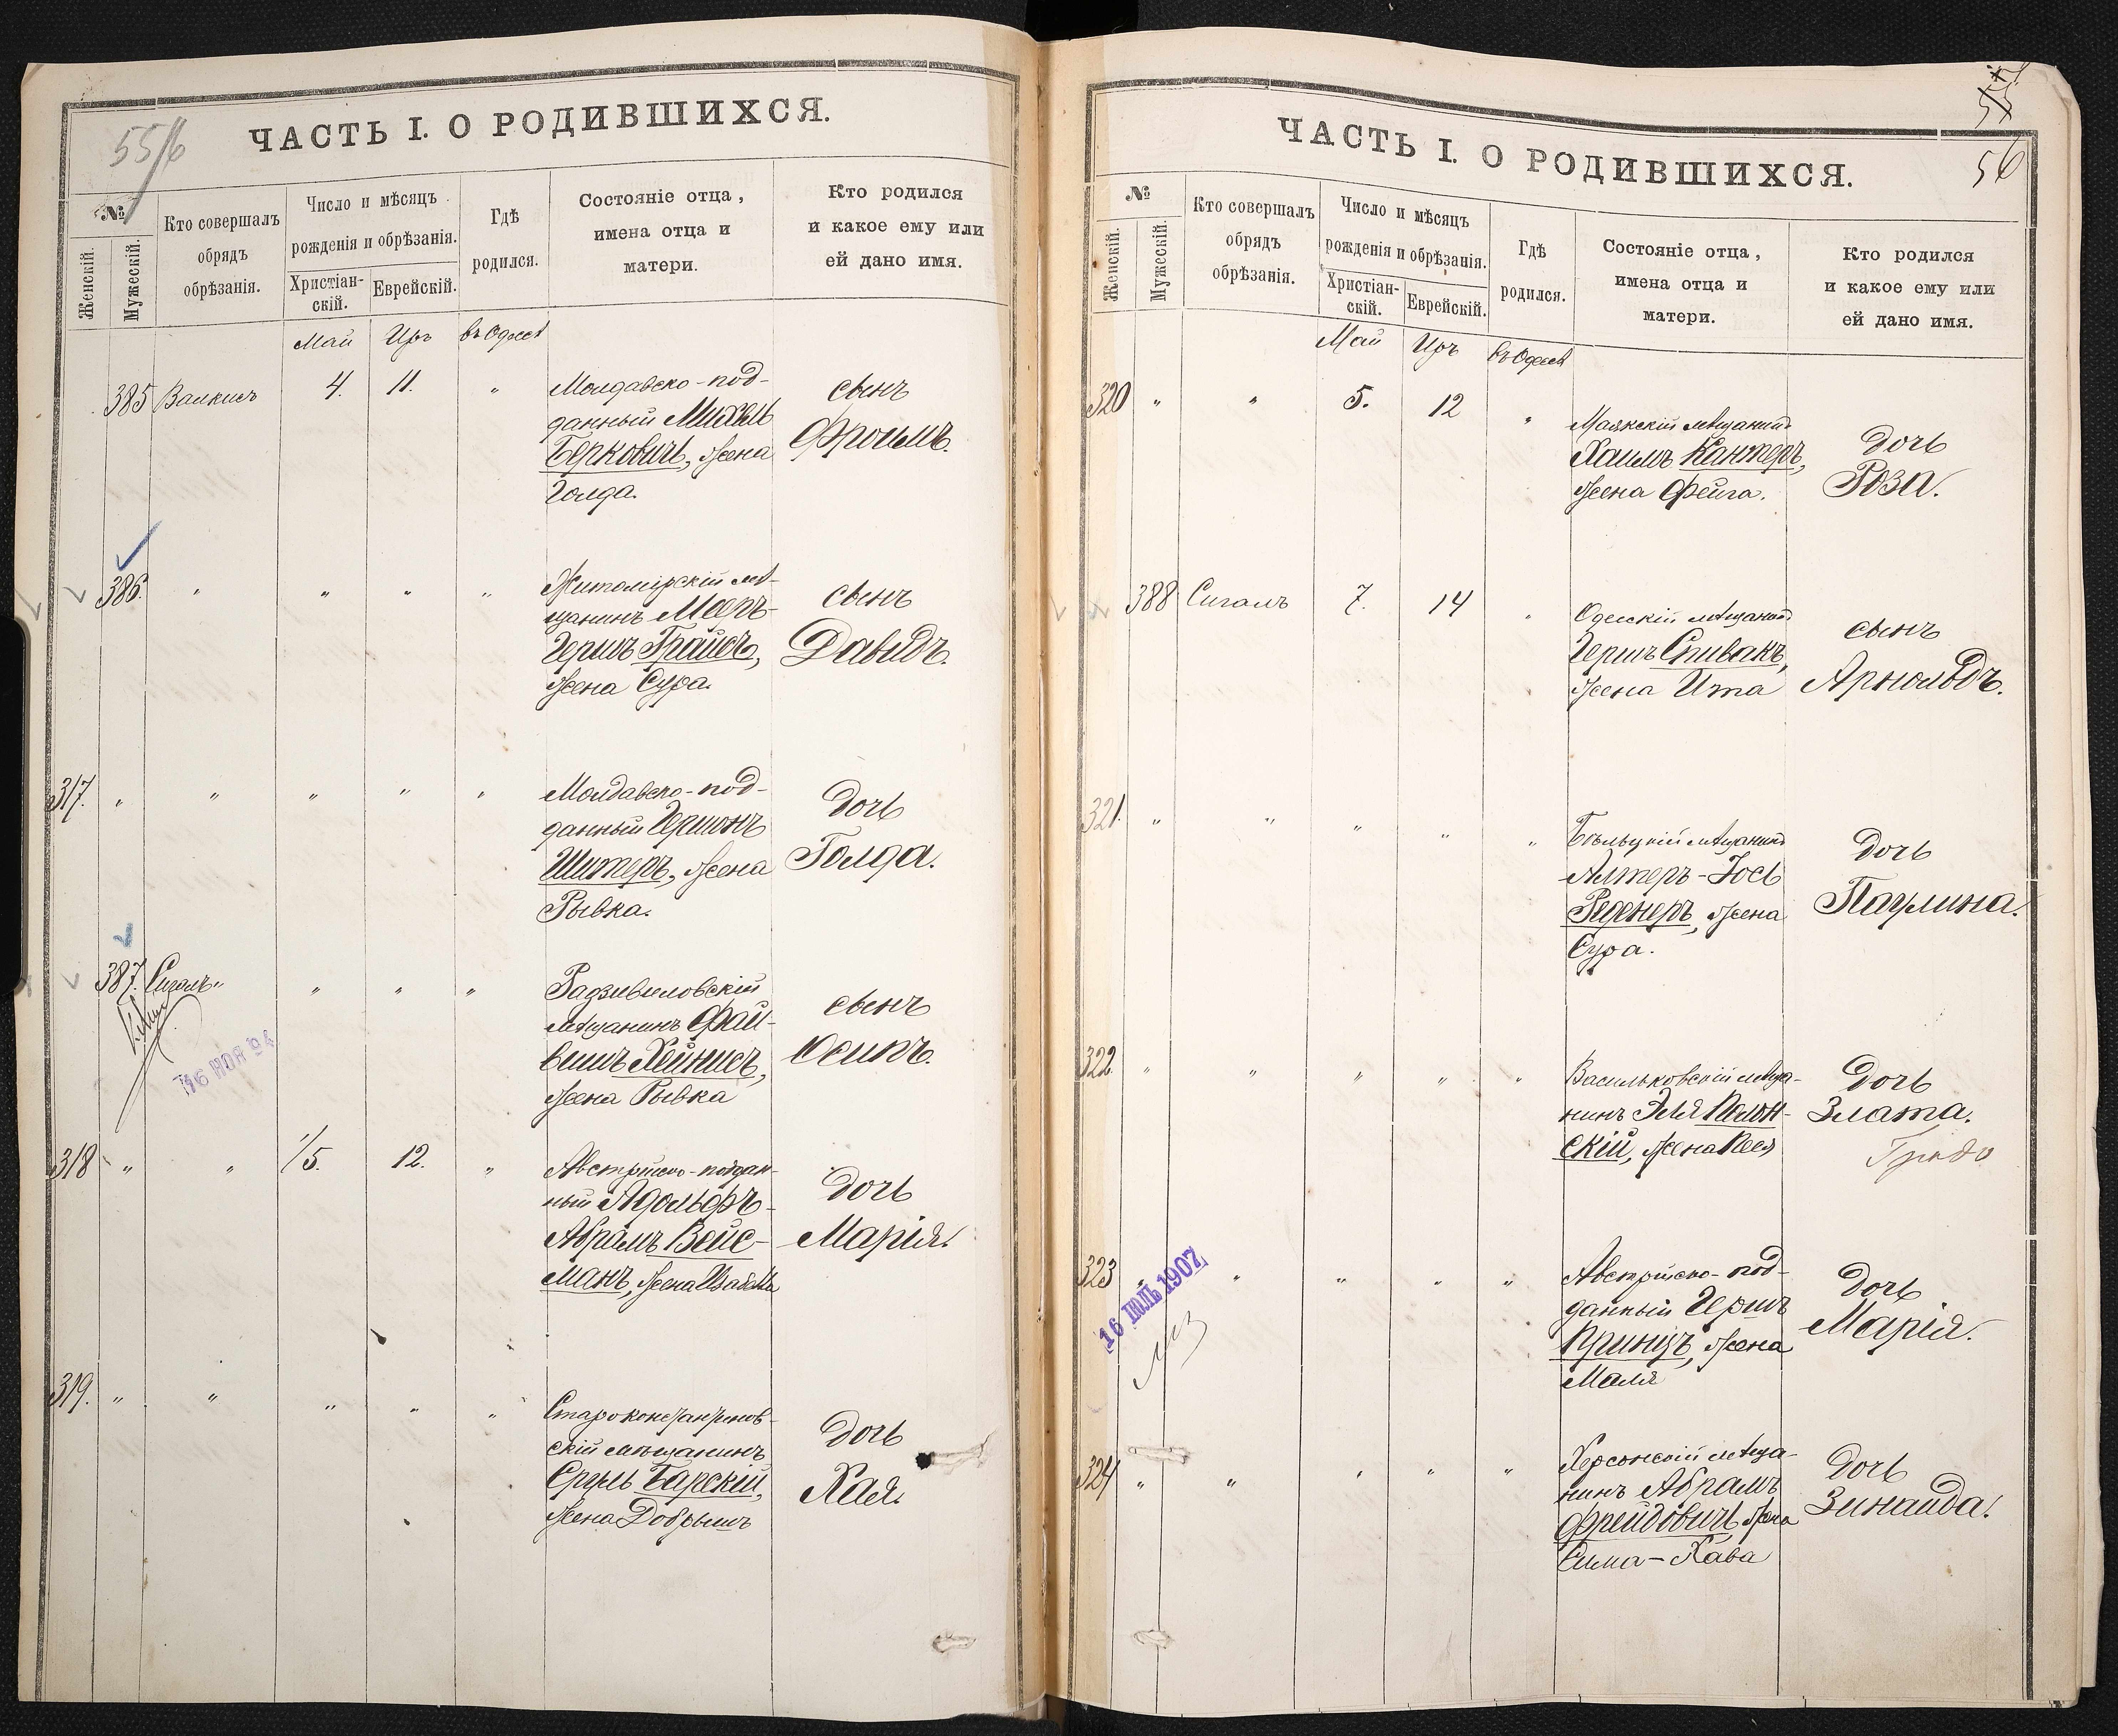 55/6
ЧАСТЬ I. О РОДИВШИХСЯ.
№
Женскій.
Мужескій.
Кто совершалъ
обрядъ
обрѣзанія.
Число и мѣсяцъ
рожденія и обрѣзанія.
Христіан-
скій.
Еврейскій.
Гдѣ
родился.
Состояніе отца,
имена отца и
матери.
Кто родился
и какое ему или
ей дано имя.
Май Иръ въ Одессѣ
385 Валкисъ 4. 11. "
Молдавско-под-
данный Михель
Берковичъ, жена
Голда.
сынъ
Фроимъ.
386. " " " "
Житомірскій мѣ-
щанинъ Мееръ-
Гершъ Грайсъ,
жена Сура.
сынъ
Давидъ.
317. " " " " "
Молдавско-под-
данный Гершонъ
Шитеръ, жена
Рывка.
дочь
Голда.
387. Сигалъ " " "
16 НОЯ 94
Радзивиловскій
мѣщанинъ Фай-
вишъ Хейнисъ,
жена Рывка
сынъ
Осипъ.
318 " " 1/5. 12. "
Австрійско-поддан-
ный Адольфъ-
Абрамъ Вейс-
манъ, жена
дочь
Марія.
319. " " " " "
Староконстантинов-
скій мѣщанинъ
Сруль Барскій,
жена Добрышъ
дочь
Хая.
56
ЧАСТЬ I. О РОДИВШИХСЯ.
№
Женскій.
Мужескій.
Кто совершалъ
обрядъ
обрѣзанія.
Число и мѣсяцъ
рожденія и обрѣзанія.
Христіан-
скій.
Еврейскій.
Гдѣ
родился.
Состояніе отца,
имена отца и
матери.
Кто родился
и какое ему или
ей дано имя.
Май Иръ въ Одессѣ
320 " " 5. 12 "
Маякскій мѣщанинъ
Хаимъ Кантеръ,
жена Фейга.
дочь
Роза.
388 Сигалъ 7. 14 "
Одесскій мѣщанинъ
Гершъ Спивакъ,
жена Ита
сынъ
Арнольдъ.
321. " " " " "
Бѣльцкій мѣщанинъ
Алтеръ-Іось
жена
Сура.
дочь
Паулина.
322 " " " " "
Васильковскій мѣща-
нинъ Эля Полон-
скій, жена Песя
дочь
Злата.
323 " " " " "
16 ІЮЛЬ 1907
Австрійско-под-
данный Гершъ
Принцъ, жена
Маля
дочь
Марія.
324 " " " " "
Херсонскій мѣща-
нинъ Абрамъ
Фрейдовичъ, жена
Сима-Хава
дочь
Зинаида.